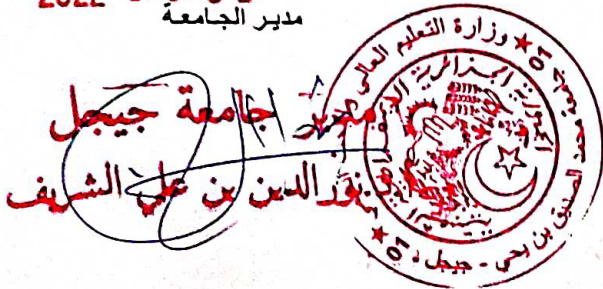 2022
مدير الجامعة
مدير جامعة جيجل
نور الدين بن علي الشريف
وزارة التعليم العالي
الجمهورية الجزائرية
محمد الصديق بن يحي - جيجل